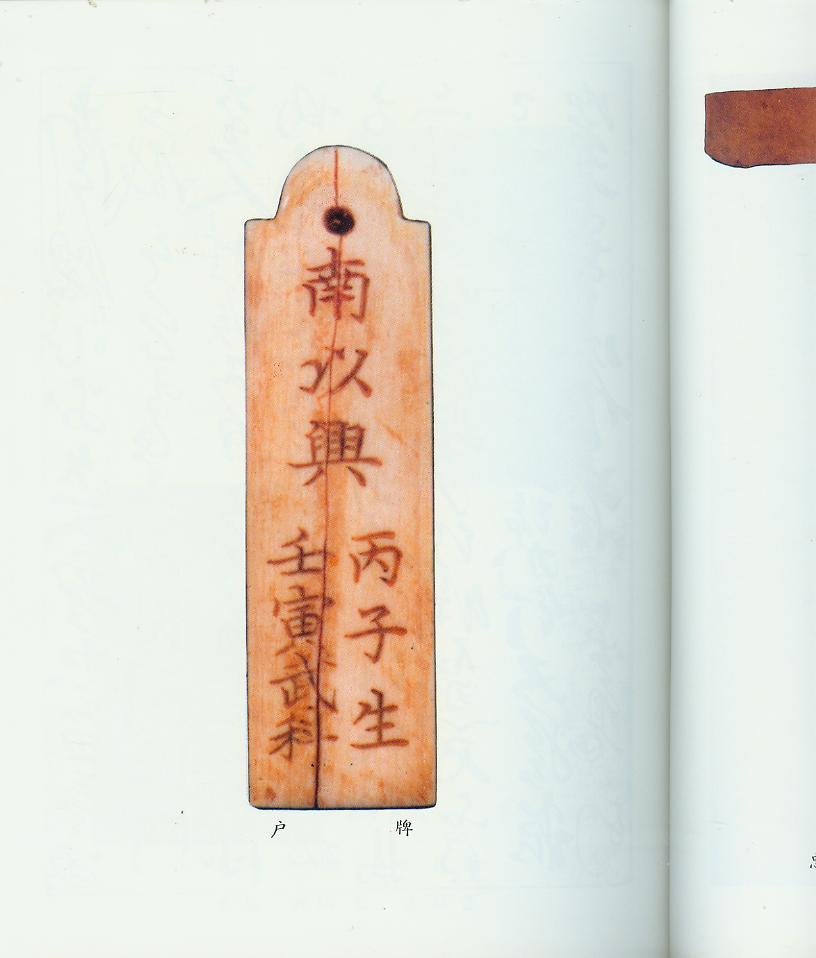 南以興
丙子生
壬寅武科
户牌